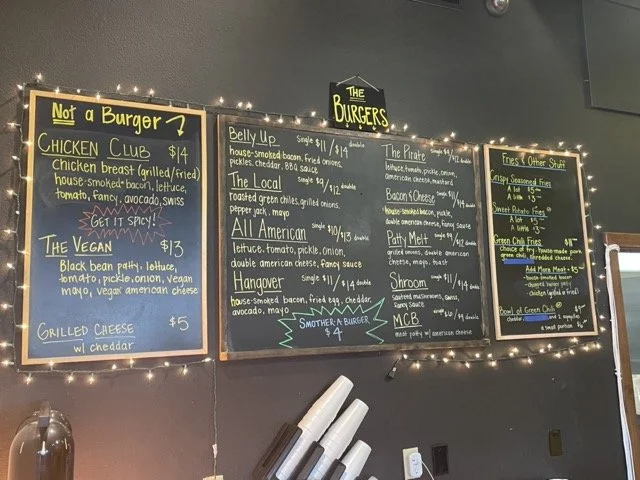 Not a Burger
CHICKEN CLUB $14
chicken breast (grilled/fried)
house-smoked bacon, lettuce,
tomato, fancy, avocado, swiss
GET IT SPICY!
THE VEGAN $13
Black bean patty, lettuce,
tomato, pickle, onion, vegan
mayo, vegan american cheese
GRILLED CHEESE $5
w/ cheddar
THE
BURGERS
Belly Up single $11/$14 double
house-smoked bacon, fried onions,
pickles, cheddar, BBQ sauce
The Local single $9/$12 double
roasted green chiles, grilled onions,
pepper jack, mayo
All American single $10/$13 double
lettuce, tomato, pickle, onion,
double american cheese, fancy sauce
Hangover single $11/$14 double
house-smoked bacon, fried egg, cheddar,
avocado, mayo
SMOTHER-A-BURGER
$4
The Pirate single $9/$12 double
lettuce, tomato, pickle, onion,
american cheese, mustard
Bacon & Cheese single double
house-smoked bacon, pickle,
double american cheese, fancy sauce
Patty Melt single $9/$12 double
grilled onions, double american
cheese, mayo, toast
Shroom single $11/$14 double
sauteed mushrooms, swiss,
fancy sauce
M.C.B. single double
meat patty w/ american cheese
Fries & Other Stuff
Crispy Seasoned Fries
A lot $5
A little $3
Sweet Potato Fries
A lot
A little
Green Chili Fries
choice of fry, house-made pork
green chili, shredded cheese
Add More Meat $5
-house-smoked bacon
-chopped burger patty
-chicken (grilled or fried)
Bowl of Green Chili
cheddar, and 2 sopapillas
a small portion